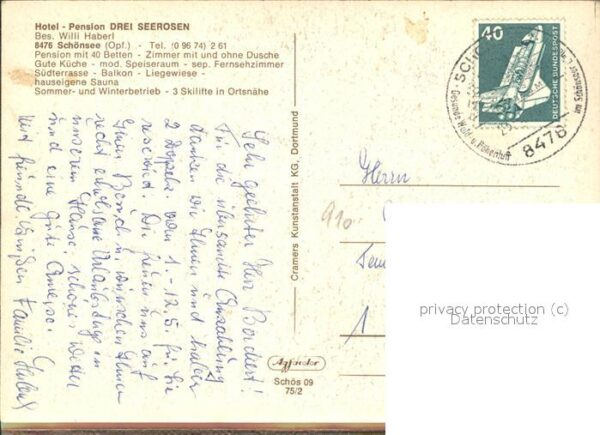 Hotel - Pension DREI SEEROSEN
Bes. Willi Haberl
8476 Schönsee (Opf.) - Tel. (0 96 74) 2 61
Pension mit 40 Betten - Zimmer mit und ohne Dusche
Gute Küche - mod. Speiseraum - sep. Fernsehzimmer
Südterrasse - Balkon - Liegewiese -
hauseigene Sauna
Sommer- und Winterbetrieb - 3 Skilifte in Ortsnähe
Sehr geehrter Herr
Für die übersandte Anzahlung
danken wir Ihnen und haben
2 Doppelz. vom 1.-12.5. für Sie
reserviert. Wir freuen uns auf
Ihren Besuch u. wünschen Ihnen
recht erholsame Urlaubstage in
unserem Hause, schönes Wetter
und eine gute Anreise.
Mit freundlichen Grüßen Familie Haberl
Cramers Kunstanstalt KG, Dortmund
Agfacolor
Schös 09
75/2
40
DEUTSCHE BUNDESPOST
8476
Herrn
910
1
privacy protection (c)
Datenschutz